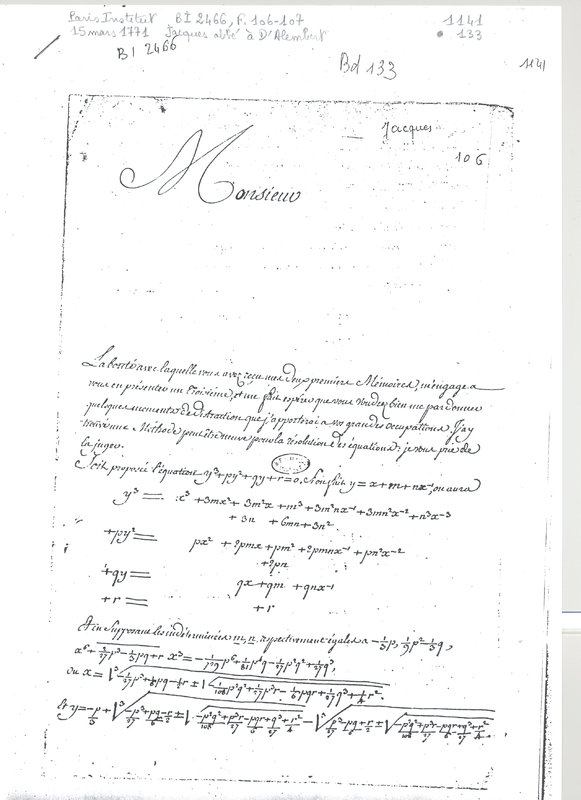 Paris Institut BI 2466, F. 106-107 1141
15 mars 1771 Jacques abbé à D'Alembert • 133
BI 2466
Bd 133
1141
Jacques
106
Monsieur
La bonté avec laquelle vous avez reçu mes deux premiers Mémoires, m'engage a
vous en présenter un troisième, et me fait espérer que vous voudrez bien me pardonner
quelques moments de distraction que j'apporterai a vos grandes occupations. J'ay
une Méthode peut être neuve pour la résolution des équations: je vous prie de
la juger.
Soit proposé l'équation y³+py²+qy+r=0. Si on fait y = x+m+nx⁻¹, on aura
y³ = x³ +3mx²+3m²x+m³+3m²nx⁻¹+3mn²x⁻²+n³x⁻³
+3n +6mn+3n²
+py² = px² +2pmx+pm²+2pmnx⁻¹+pn²x⁻²
+2pn
+qy = qx+qm+qnx⁻¹
+r = +r
et en supposant les indéterminées m, n, respectivement égales a -1/3p, 1/9p²-1/3q,
x⁶+2/27p³-1/3pq+r x³=-1/729p⁶+1/81p⁴q-1/27p²q²+1/27q³,
ou x=√³-1/27p³+1/6pq-1/2r±√-1/108p²q²+1/27p³r-1/6pqr+1/27q³+1/4r².
Et y=-p/3+√³-p³/27+pq/6-r/2±√-p²q²/108+p³r/27-pqr/6+q³/27+r²/4-√³p³/27-pq/6+r/2±√-p²q²/108+p³r/27-pqr/6+q³/27+r²/4.